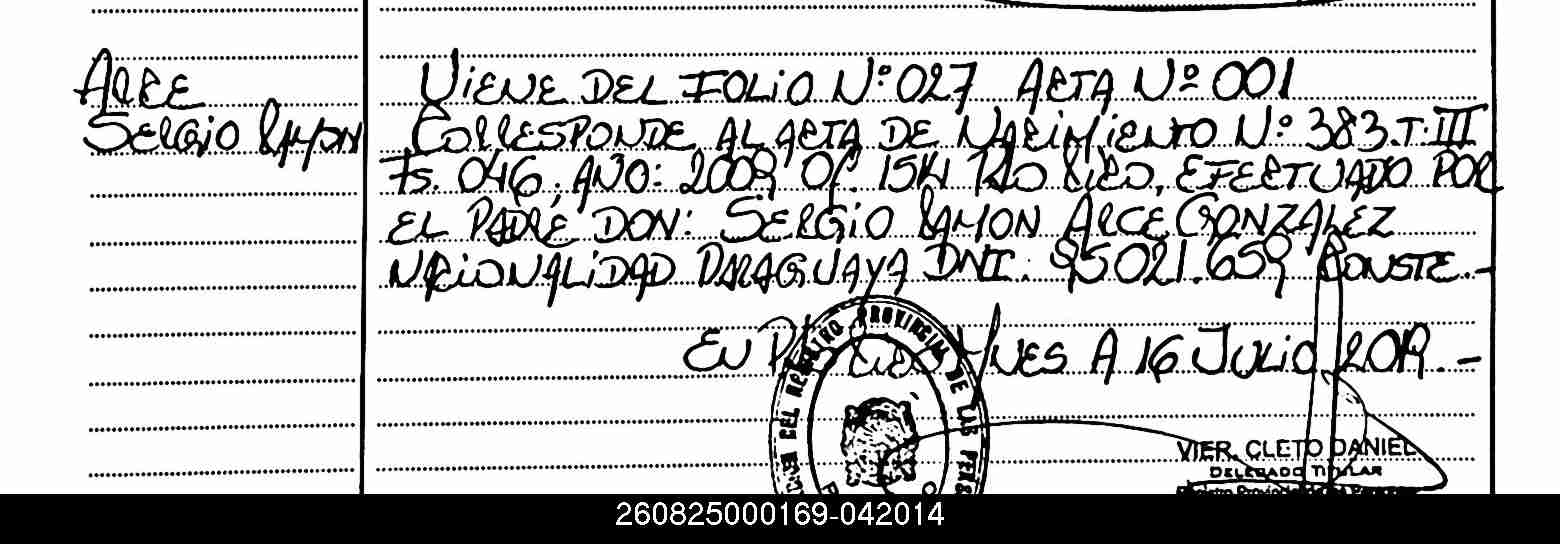 ARCE
SERGIO RAMON
VIENE DEL FOLIO Nº 027 ACTA Nº 001
CORRESPONDE AL ACTA DE NACIMIENTO Nº 383.T:III
Fs. 046, AÑO: 2009, Of. 154 Pto Rico, EFECTUADO POR
EL PADRE DON: SERGIO RAMON ARCE GONZALEZ
NACIONALIDAD PARAGUAYA DNI: 95021.659 CONSTE.-
EN Pto RICO Mnes A 16 JULIO 2019.-
REGISTRO PROVINCIAL DE LAS PERS
VIER. CLETO DANIEL
DELEGADO TITULAR
260825000169-042014